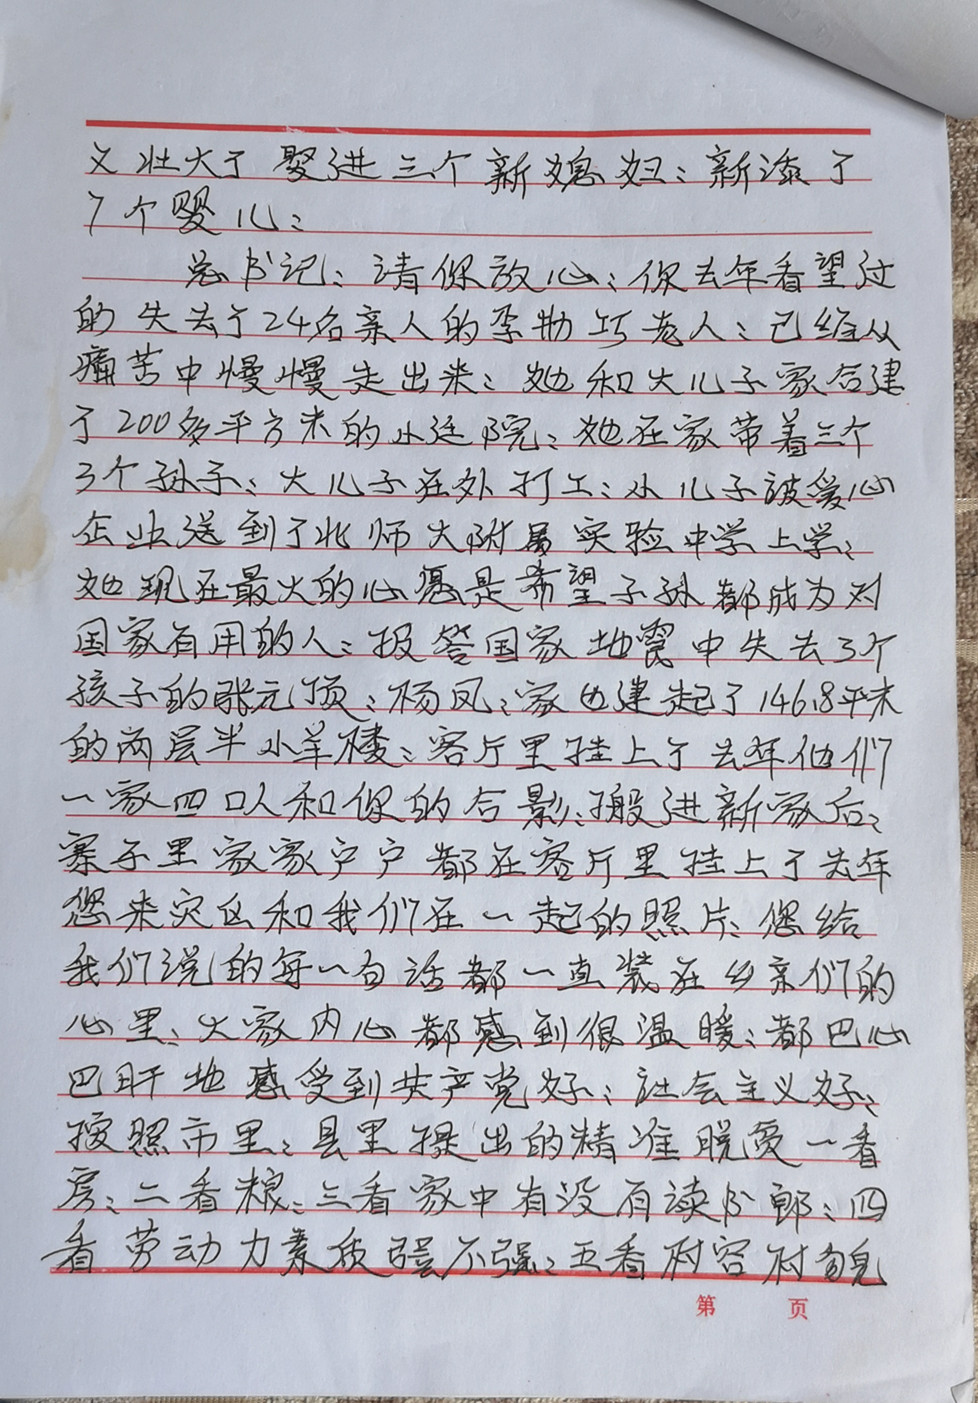 又壮大了娶进三个新媳妇；新添了
7个婴儿；
总书记；请你放心；你去年看望过
的失去了24名亲人的李物巧老人；已经从
痛苦中慢慢走出来；她和大儿子家合建
了200多平方米的小廷院；她在家带着三个
3个孙子；大儿子在外打工；小儿子被爱心
企业送到了北师大附属实验中学上学；
她现在最大的心愿是希望子孙都成为对
国家有用的人；报答国家地震中失去3个
孩子的张元顶；杨凤；家也建起了146.8平米
的两层半小羊楼；客厅里挂上了去年他们
一家四口人和你的合影；搬进新家后；
寨子里家家户户都在客厅里挂上了去年
您来灾区和我们在一起的照片；您给
我们说的每一句话都一直装在乡亲们的
心里；大家内心都感到很温暖；都巴心
巴肝地感受到共产党好；社会主义好；
按照市里；县里提出的精准脱贫一看
房；二看粮；三看家中有没有读书郎；四
看劳动力素质强不强；五看村容村貌
第 页